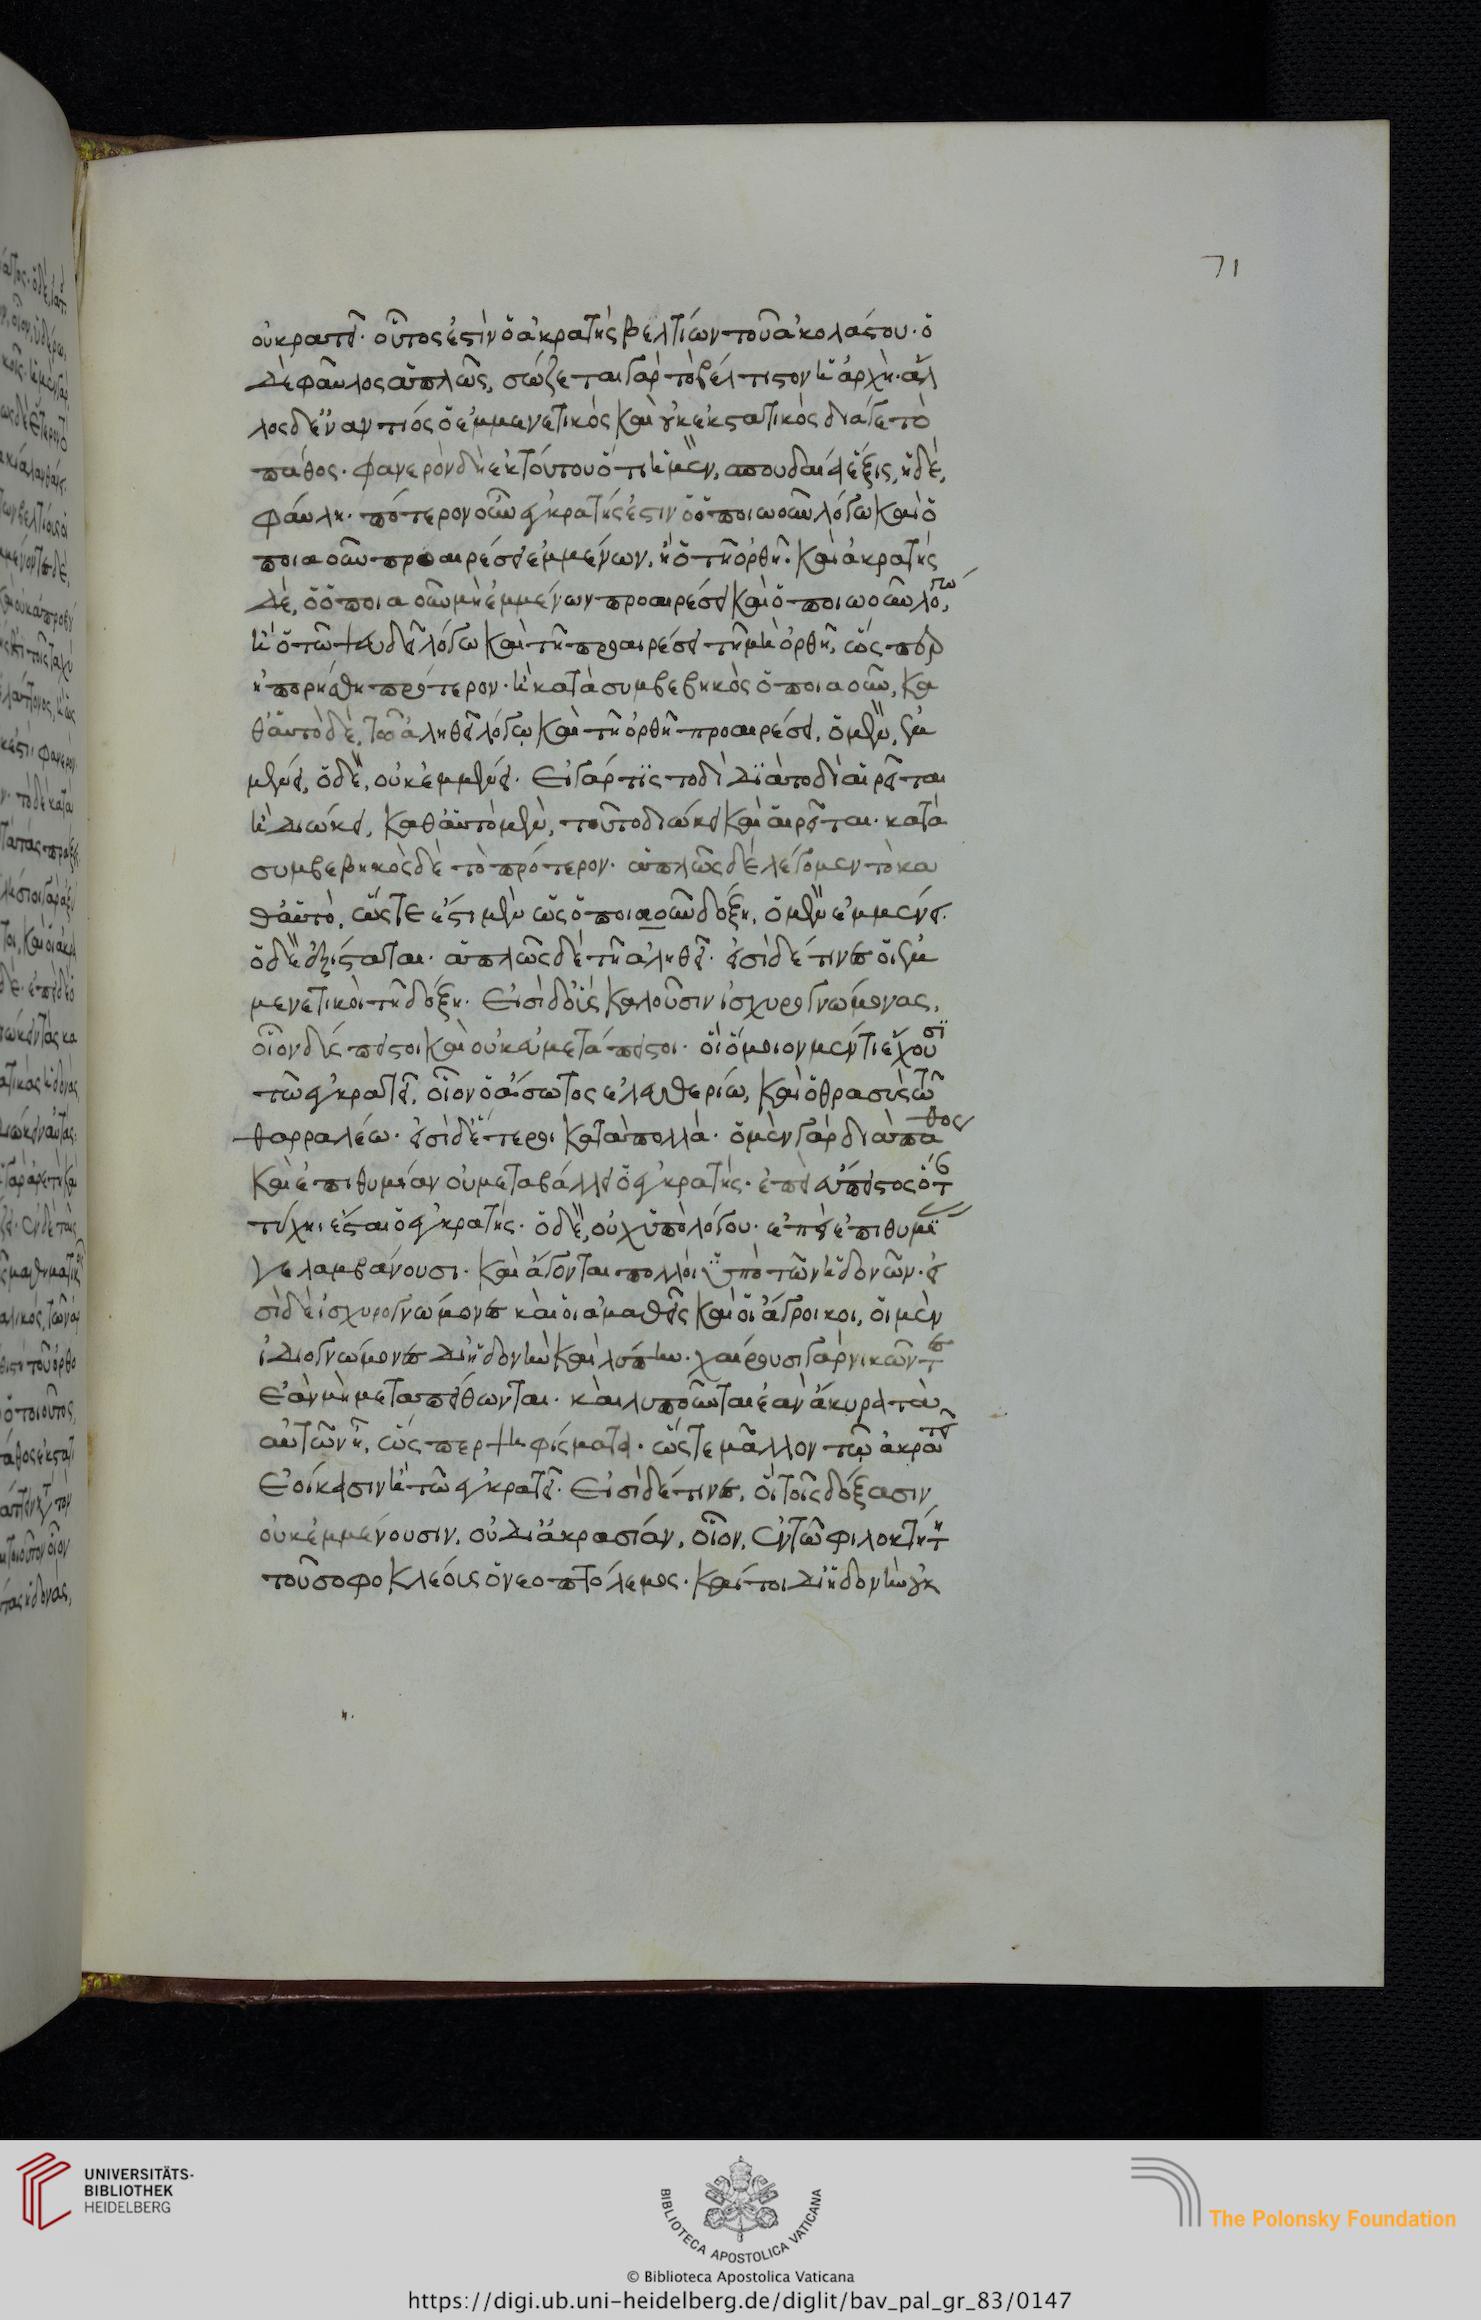 71
οὐ κρατεῖ· οὗτός ἐστιν ὁ ἀκρατὴς βελτίων τοῦ ἀκολάστου· ὁ
δὲ φαῦλος ἁπλῶς, σώζεται γὰρ τὸ βέλτιστον ἡ ἀρχή· ἄλ
λος δ' ἐναντίος ὁ ἐμμενετικὸς καὶ οὐκ ἐκστατικὸς διά γε τὸ
πάθος· φανερὸν δὴ ἐκ τούτου ὅτι ἡ μὲν, σπουδαία ἕξις, ἡ δὲ,
φαύλη· πότερον οὖν ἐγκρατής ἐστιν ὁ ὁποιωοῦν λόγω καὶ ὁ
ποιαοῦν προαιρέσει ἐμμένων, ἢ ὁ τῆ ὀρθῆ· καὶ ἀκρατὴς
δὲ, ὁ ὁποιαοῦν μὴ ἐμμένων προαιρέσει καὶ ὁποιωοῦν λόγω,
ἢ ὁ τῶ ψευδεῖ λόγω καὶ τῆ προαιρέσει τῆ μὴ ὀρθῆ, ὥσπερ
ἠπορήθη πρότερον· ἢ κατὰ συμβεβηκὸς ὁποιαοῦν, κα
θ' αὑτὸ δὲ, τῶ ἀληθεῖ λόγω καὶ τῆ ὀρθῆ προαιρέσει, ὁ μὲν, ἐμ
μένει, ὁ δὲ, οὐκ ἐμμένει· Εἰ γάρ τις τοδὶ διὰ τοδὶ αἱρεῖται
ἢ διώκει, καθ' αὑτὸ μὲν, τοῦτο διώκει καὶ αἱρεῖται· κατὰ
συμβεβηκὸς δὲ τὸ πρότερον· ἁπλῶς δὲ λέγομεν τὸ κα
θ' αὑτὸ, ὥστε ἔστι μὲν ὡς ὁποιαοῦν δόξη, ὁ μὲν ἐμμένει·
ὁ δὲ ἐξίσταται· ἁπλῶς δὲ τῆ ἀληθεῖ· εἰσὶ δέ τινες οἳ ἐμ
μενετικοὶ τῆ δόξη· Εἰσὶ δ' οἷς καλοῦσιν ἰσχυρογνώμονας,
οἷον δύσπειστοι καὶ οὐκ εὐμετάπειστοι· οἳ ὅμοιον μέν τι ἔχουσι
τῶ ἐγκρατεῖ, οἷον ὁ ἄσωτος ἐλευθερίω, καὶ ὁ θρασὺς τῶ
θαρραλέω· εἰσὶ δ' ἕτεροι κατὰ πολλά· ὁ μὲν γὰρ διὰ πάθος
καὶ ἐπιθυμίαν οὐ μεταβάλλει ὁ ἐγκρατής· ἐπεὶ εὔπειστος ὅταν
τύχη ἔσται ὁ ἐγκρατής· ὁ δὲ, οὐχ ὑπὸ λόγου· ἐπεὶ ἐπιθυμίας
γε λαμβάνουσι· καὶ ἄγονται πολλοὶ ὑπὸ τῶν ἡδονῶν· εἰ
σὶ δὲ ἰσχυρογνώμονες καὶ οἱ ἀμαθεῖς καὶ οἱ ἄγροικοι, οἱ μὲν
ἰδιογνώμονες δι' ἡδονὴν καὶ λύπην· χαίρουσι γὰρ νικῶντες
ἐὰν μὴ μεταπείθωνται· καὶ λυποῦνται ἐὰν ἄκυρα τὰ
αὐτῶν ἦ, ὥσπερ ψηφίσματα· ὥστε μᾶλλον τῶ ἀκρατεῖ
ἐοίκασιν ἢ τῶ ἐγκρατεῖ· Εἰσὶ δέ τινες, οἳ τοῖς δόξασιν
οὐκ ἐμμένουσιν, οὐ δι' ἀκρασίαν, οἷον, ἐν τῶ φιλοκτήτη
τοῦ σοφοκλέους ὁ νεοπτόλεμος· καίτοι δι' ἡδονὴν οὐκ
UNIVERSITÄTS-
BIBLIOTHEK
HEIDELBERG
BIBLIOTECA APOSTOLICA VATICANA
The Polonsky Foundation
© Biblioteca Apostolica Vaticana
https://digi.ub.uni-heidelberg.de/diglit/bav_pal_gr_83/0147